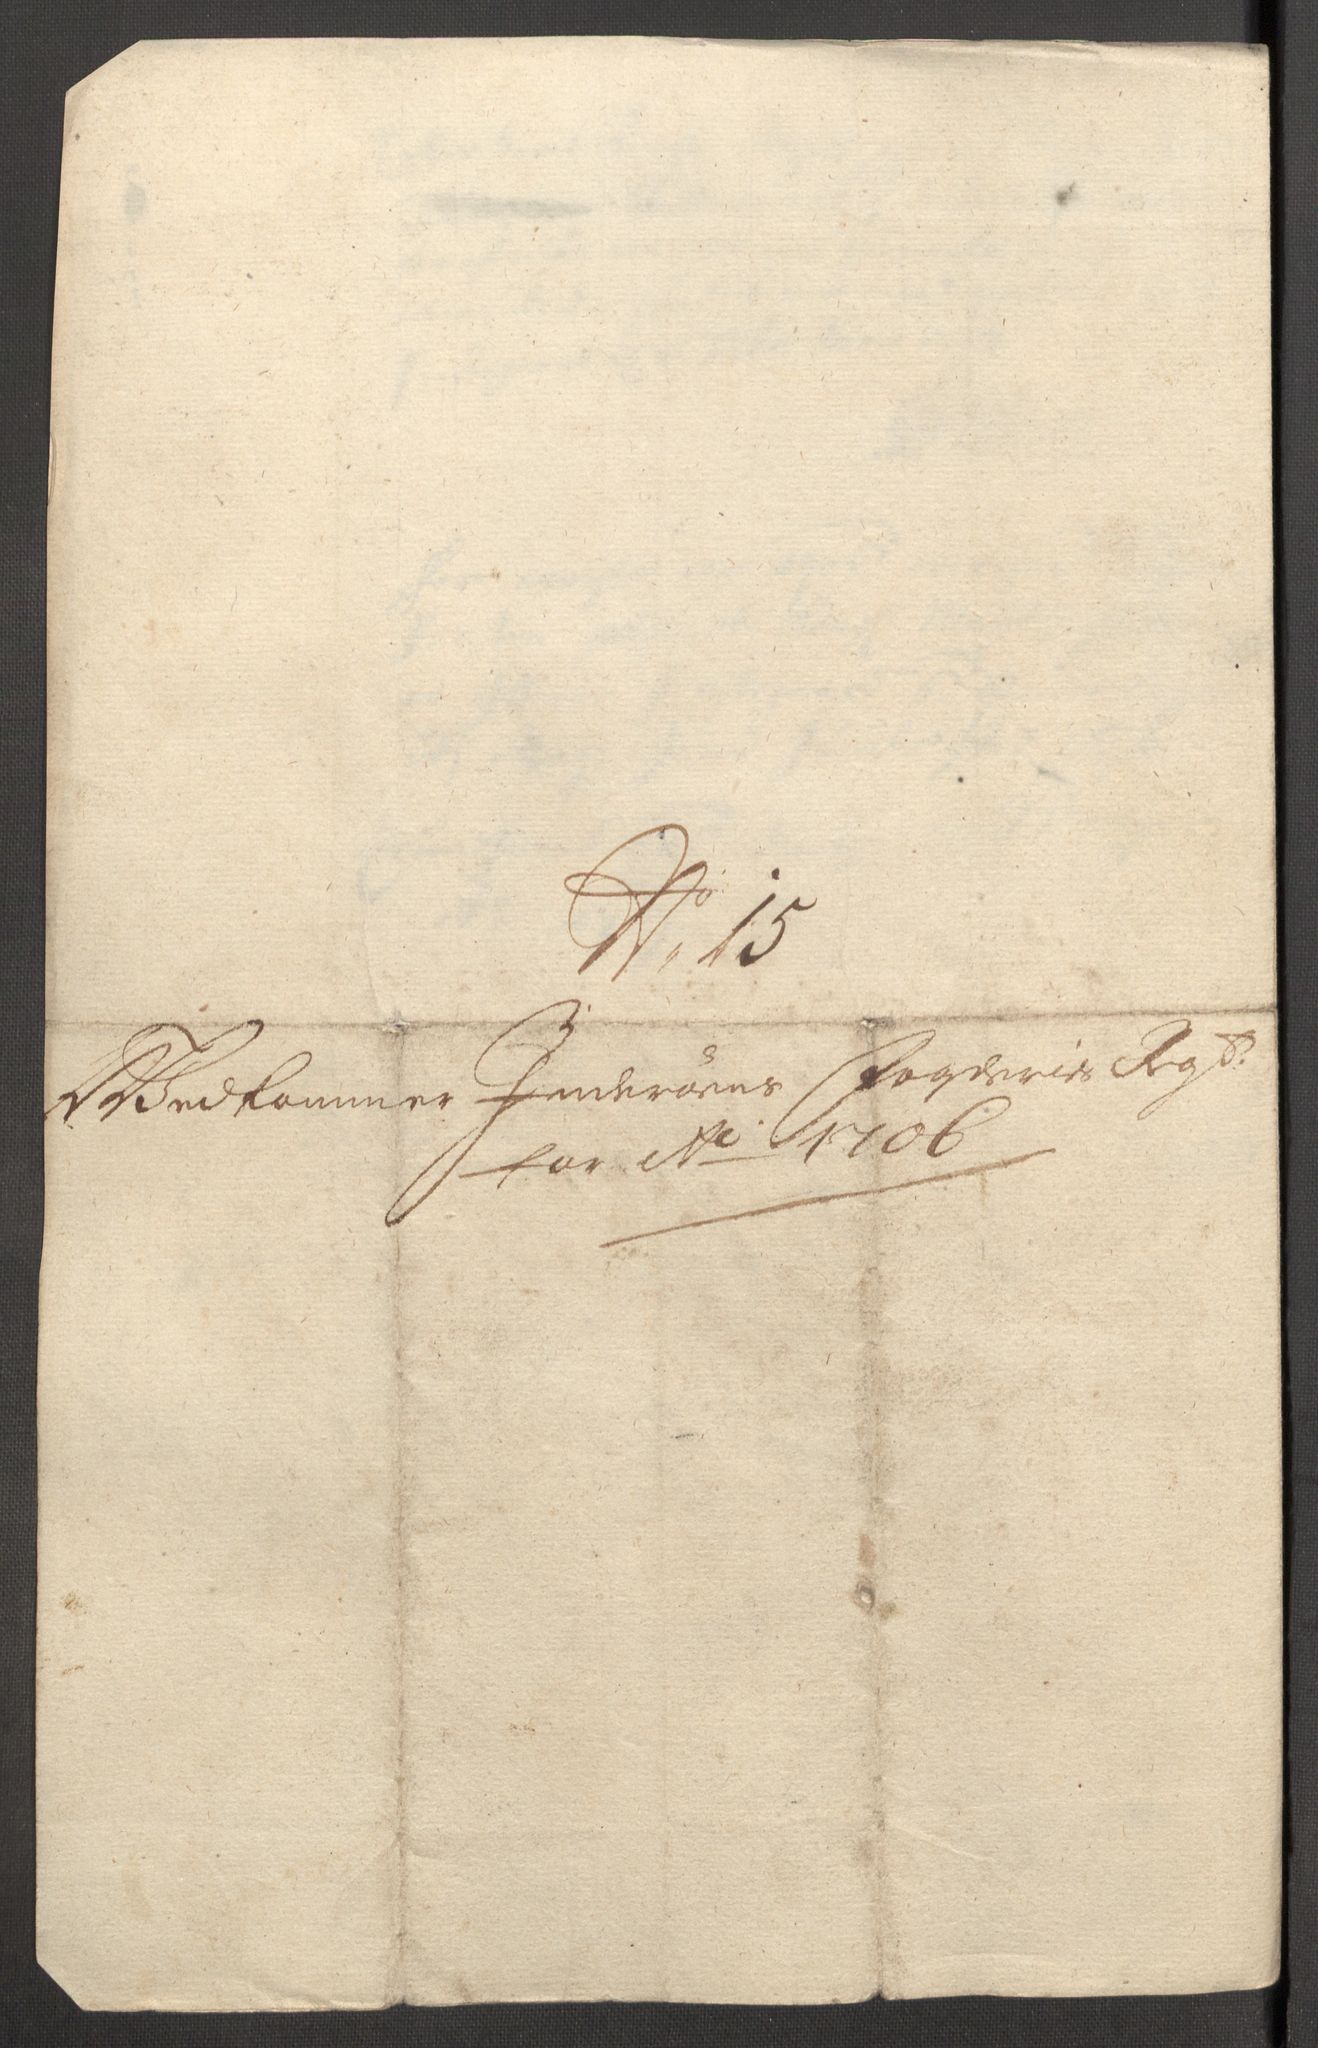 No 15
Vedkommer Inderöens Fogderies Regsk.
for Ao 1706